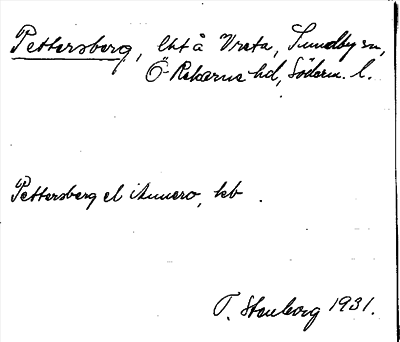 Pettersberg, lht å Vreta, Sundby sn,
Ö Rekarne hd, Söderm. l.
Pettersberg el. Annero, kb.
T. Stenborg 1931.